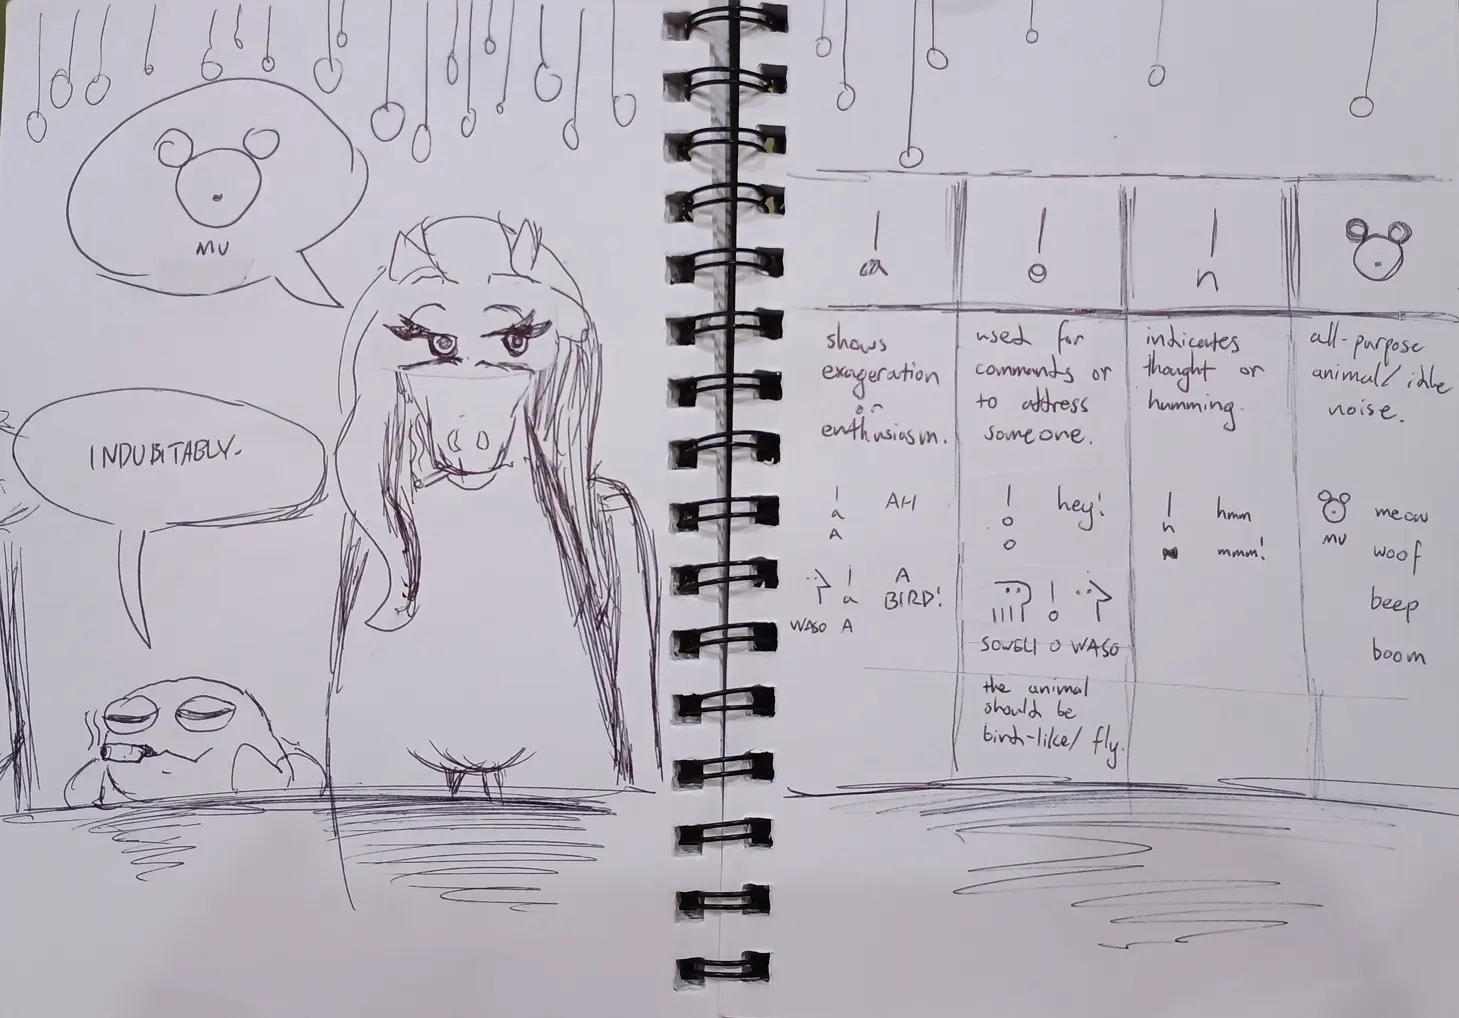 MU
INDUBITABLY.
a
o
n
shows
exageration
or
enthusiasm.
a AH
A
a A
BIRD!
WASO A
used for
commands or
to address
someone.
o hey!
o
o
SOWELI O WASO
the animal
should be
bird-like/ fly.
indicates
thought or
humming.
n hmm
mmm!
all-purpose
animal/idle
noise.
meow
MU
woof
beep
boom